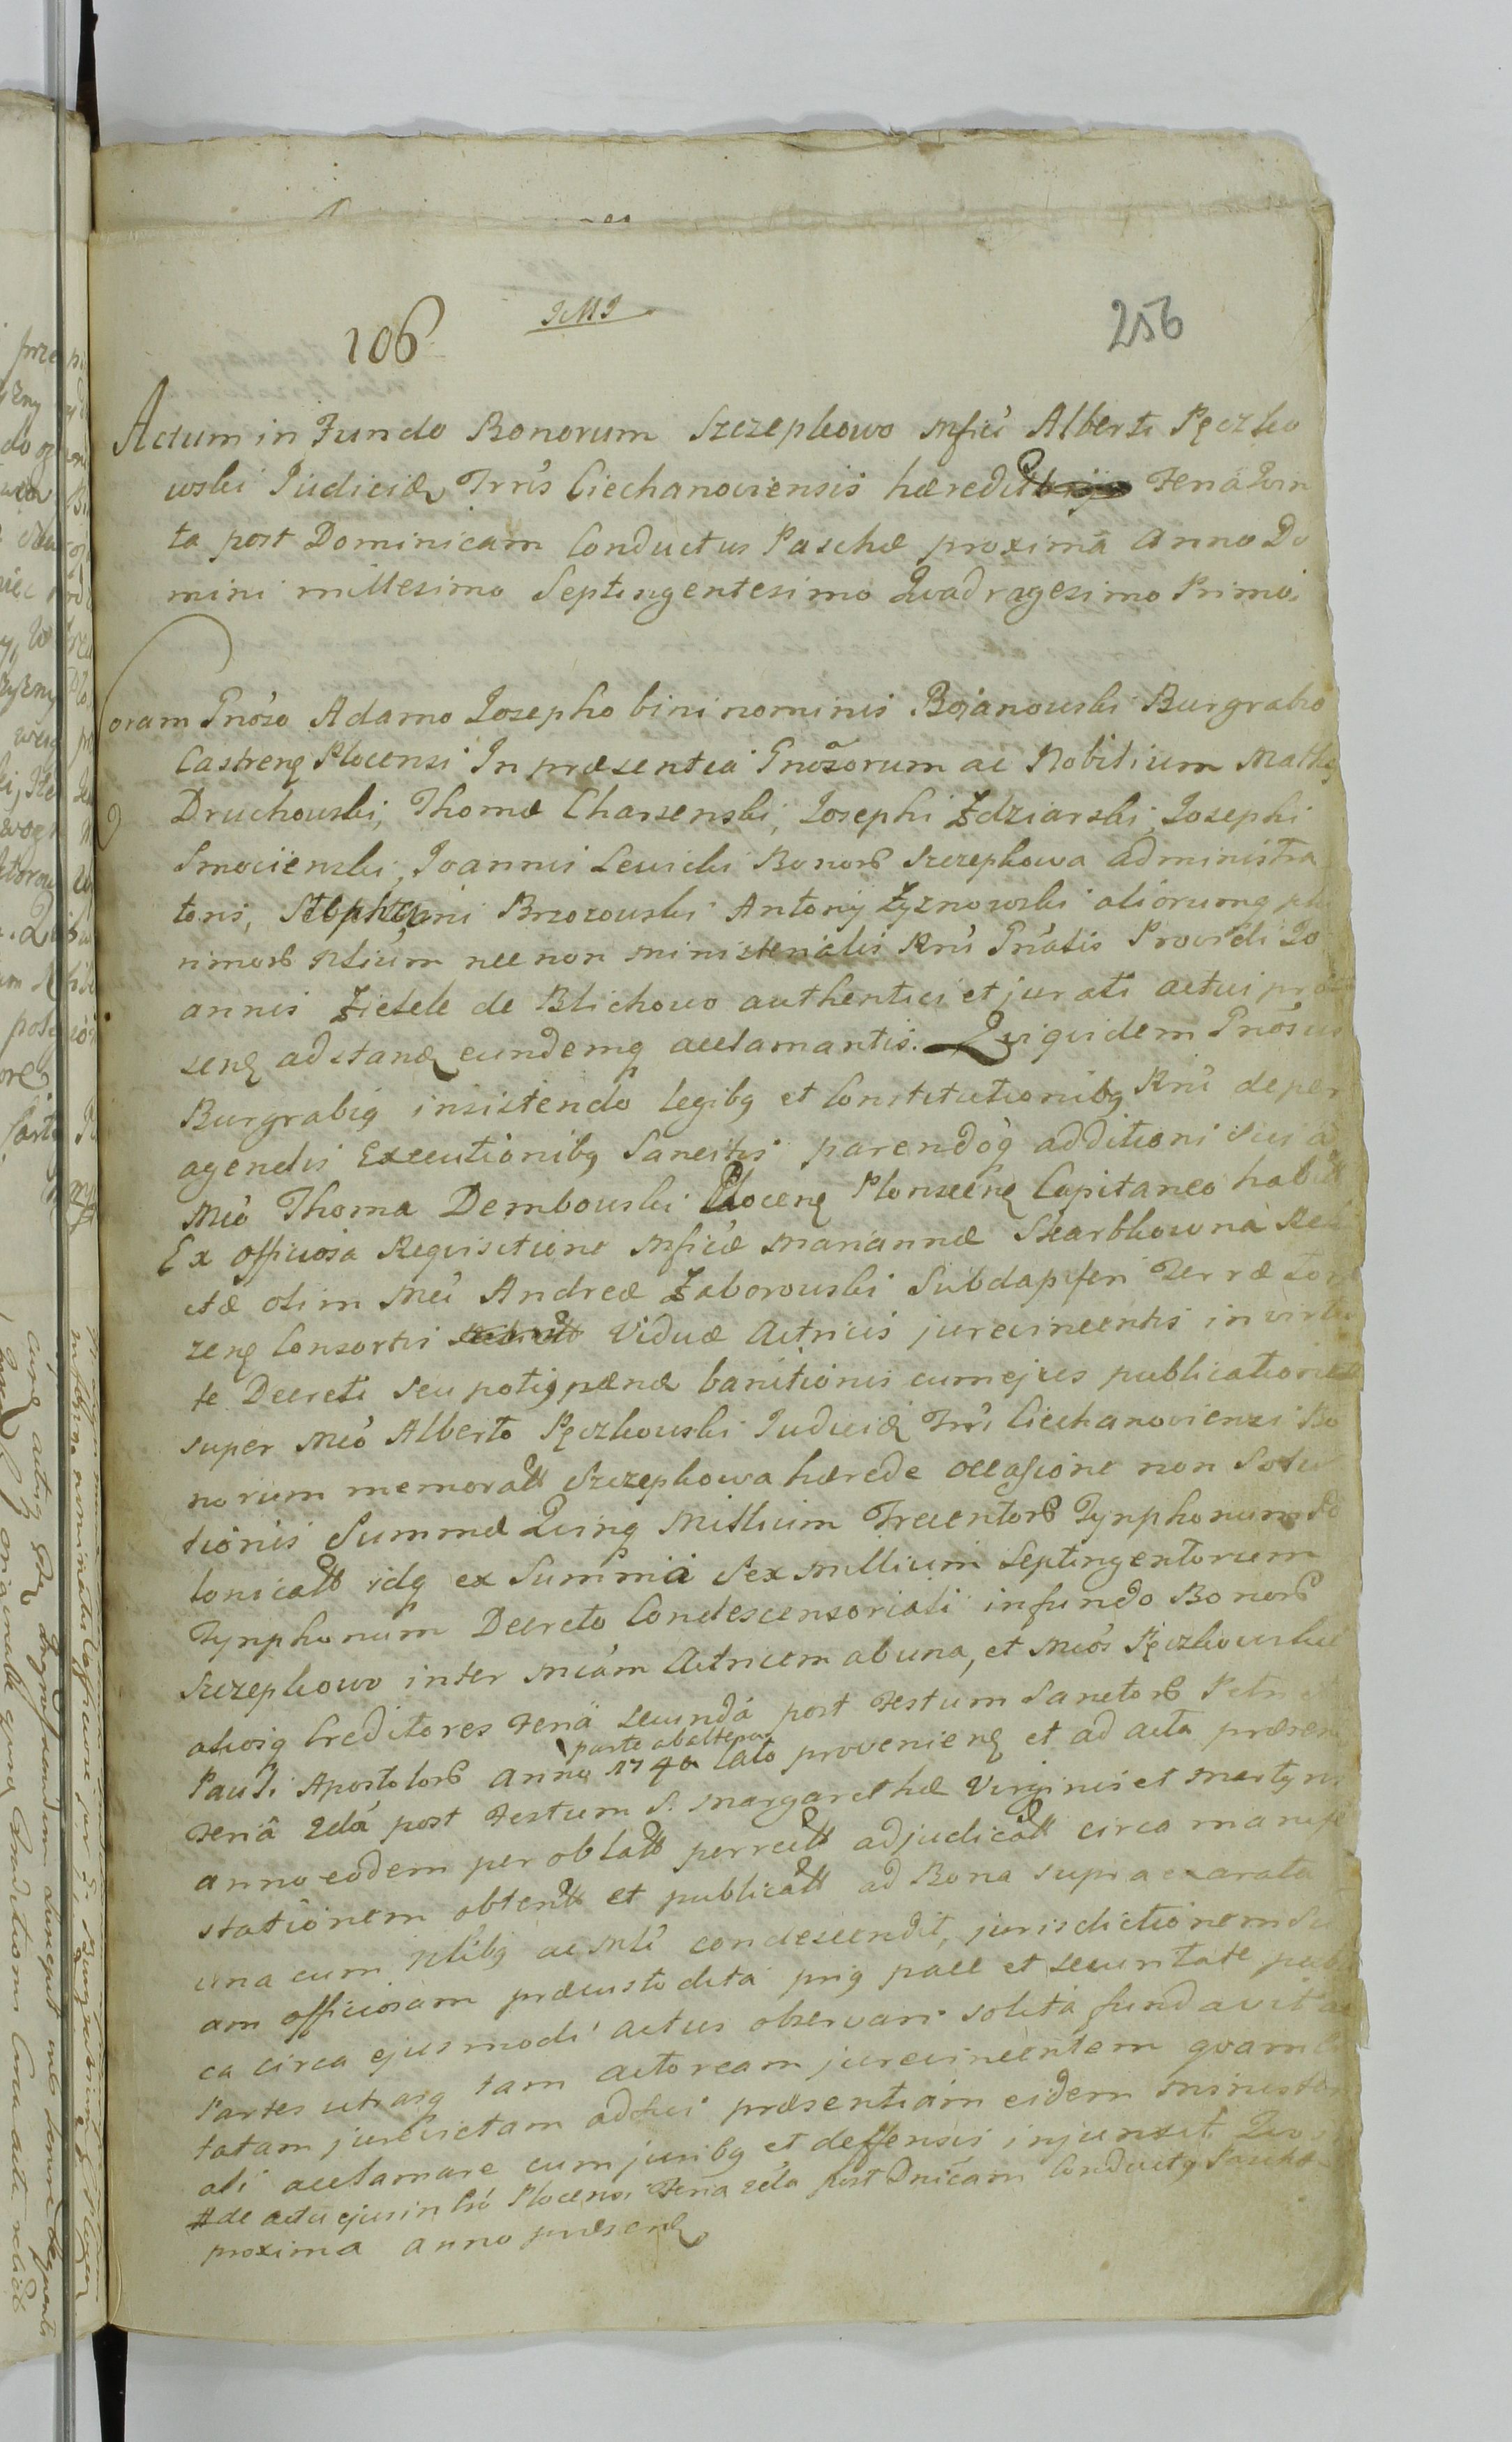 JMJ
106
256
Actum in Fundo Bonorum Szczepkowo Mfici Alberti Pęczko
wski Judicis Trris Ciechanoviensis hæredit Feria Qvin
ta post Dominicam Conductus Paschæ proxima Anno Do
mini millesimo Septingentesimo Qvadragesimo Primo.
Coram Gnoso Adamo Josepho bini nominis Bojanowski Burgrabio
Castrens Plocensi In præsentia Gnosorum ac Nobilium Math
Druchowski, Thomæ Charzenski, Josephi Zdziarski, Josephi
Smocienski, Joannis Lewicki Bonor Szczepkowa administra
toris, Stephani Brzozowski Antonij Zyznowski aliorumq plu
rimor Nlium nec non Ministerialis Rni Gnalis Providi Jo
annis Zietek de Blichowo authentici et jurati actui præ
sens adstans eundemq acclamantis. Qviqvidem Gnosus
Burgrabiq insistendo legibq et Constitutionibq Rni de per
agendis Executionibq Sancitis parendoq additioni sui a
Mco Thoma Dembowski Plocens Plonscens Capitaneo habit
Ex officiosa Reqvisitione Mficæ Mariannæ Skarbkowna Reli
ctæ olim Mci Andreæ Zaborowski Subdapiferi Terræ Lom
zens Consortis Viduæ Actricis jurevincentis in virtu
te Decreti seu potiq pænæ banitionis cum ejus publicatione
super Mco Alberto Pęczkowski Judice Trri Ciechanoviensi Bo
norum memorat Szczepkowa hærede occasione non Solu
tionis Summæ Qvinq Millium Trecentor Tynphonum Po
lonicat idq ex Summa Sex millium Septingentorum
Tynphonum Decreto Condescensoriali in fundo Bonor
Szczepkowo inter Mcam Actricem ab una, et Mcos Pęczkowski
aliosq Creditores Feria Secunda post Festum Sanctor Petri et
parte ab altera
Pauli Apostolor Anno 1740 lato proveniens et ad acta præsen
Feria 2da post Festum S. Margarethæ Virginis et Martyris
anno eodem per oblat perrect adjudicat circa manife
stationem obtent et publicat ad Bona supra exarata
una cum Nlibq ac Mli condescendit, jurisdictionem Su
am officiosam præcustodita priq pace et securitate publi
ca circa ejusmodi actus observari solita fundavit ac
Partes utrasq tam actoream jurevincentem qvam ci
tatam jurevictam ad sui præsentiam eidem Ministeri
ali acclamare cum juribq et deffensis injunxit. Qvo
de actu ejus in Cro Plocensi Feria 2da post Dnicam Conductq Paschæ
proxima anno præsens